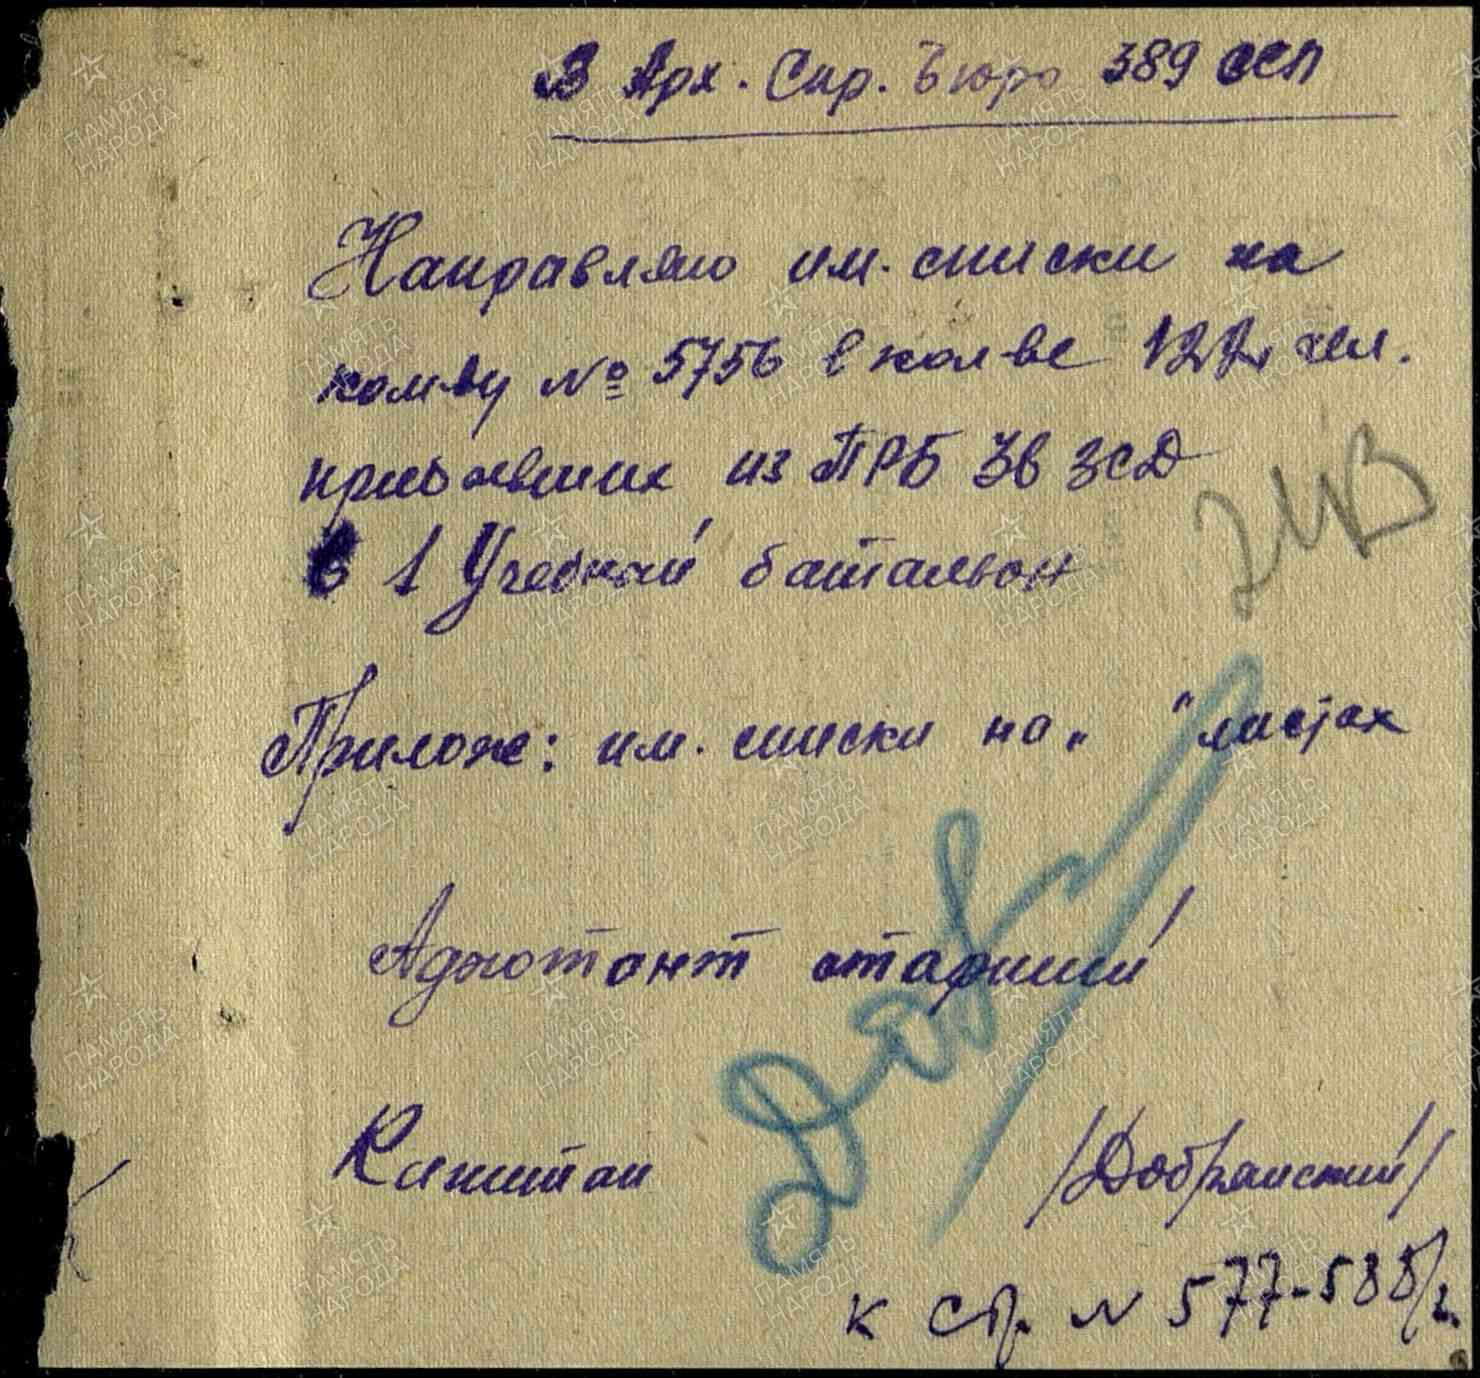 В Арх. Спр. Бюро 389 ССП
Направляю им. списки на
ком-ву № 5756 в кол-ве 122 чел.
прибывших из ПРБ 36 ЗСД
в 1 Учебный батальон
Прилож: им. списки на „ " листах
Адъютант старший
Капитан /Добрянский/
к стр. N 577-588/2.
ПАМЯТЬ НАРОДА